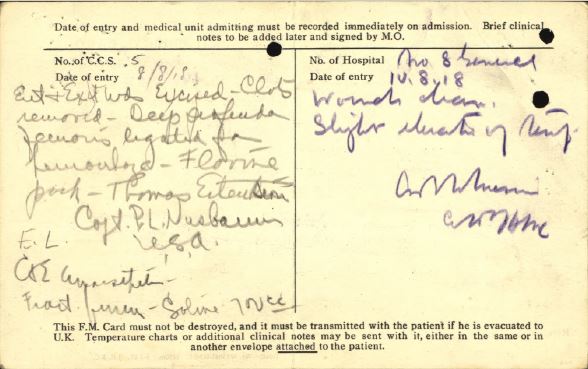 Date of entry and medical unit admitting must be recorded immediately on admission. Brief clinical
notes to be added later and signed by M.O.
No. of C.C.S. 5
Date of entry 8/8/18
Ent & Exit Wds Excised - Clots
removed - Deep profunda
femoris ligated for
- Flavine
pack - Thomas Extension
Capt. P.L.
U.S.A.
E. L.
C & E
Fract. femur - Saline 700cc
No. of Hospital No 8 General
Date of entry 10.8.18
Wounds clean.
Slight elevation of temp.
This F.M. Card must not be destroyed, and it must be transmitted with the patient if he is evacuated to
U.K. Temperature charts or additional clinical notes may be sent with it, either in the same or in
another envelope attached to the patient.